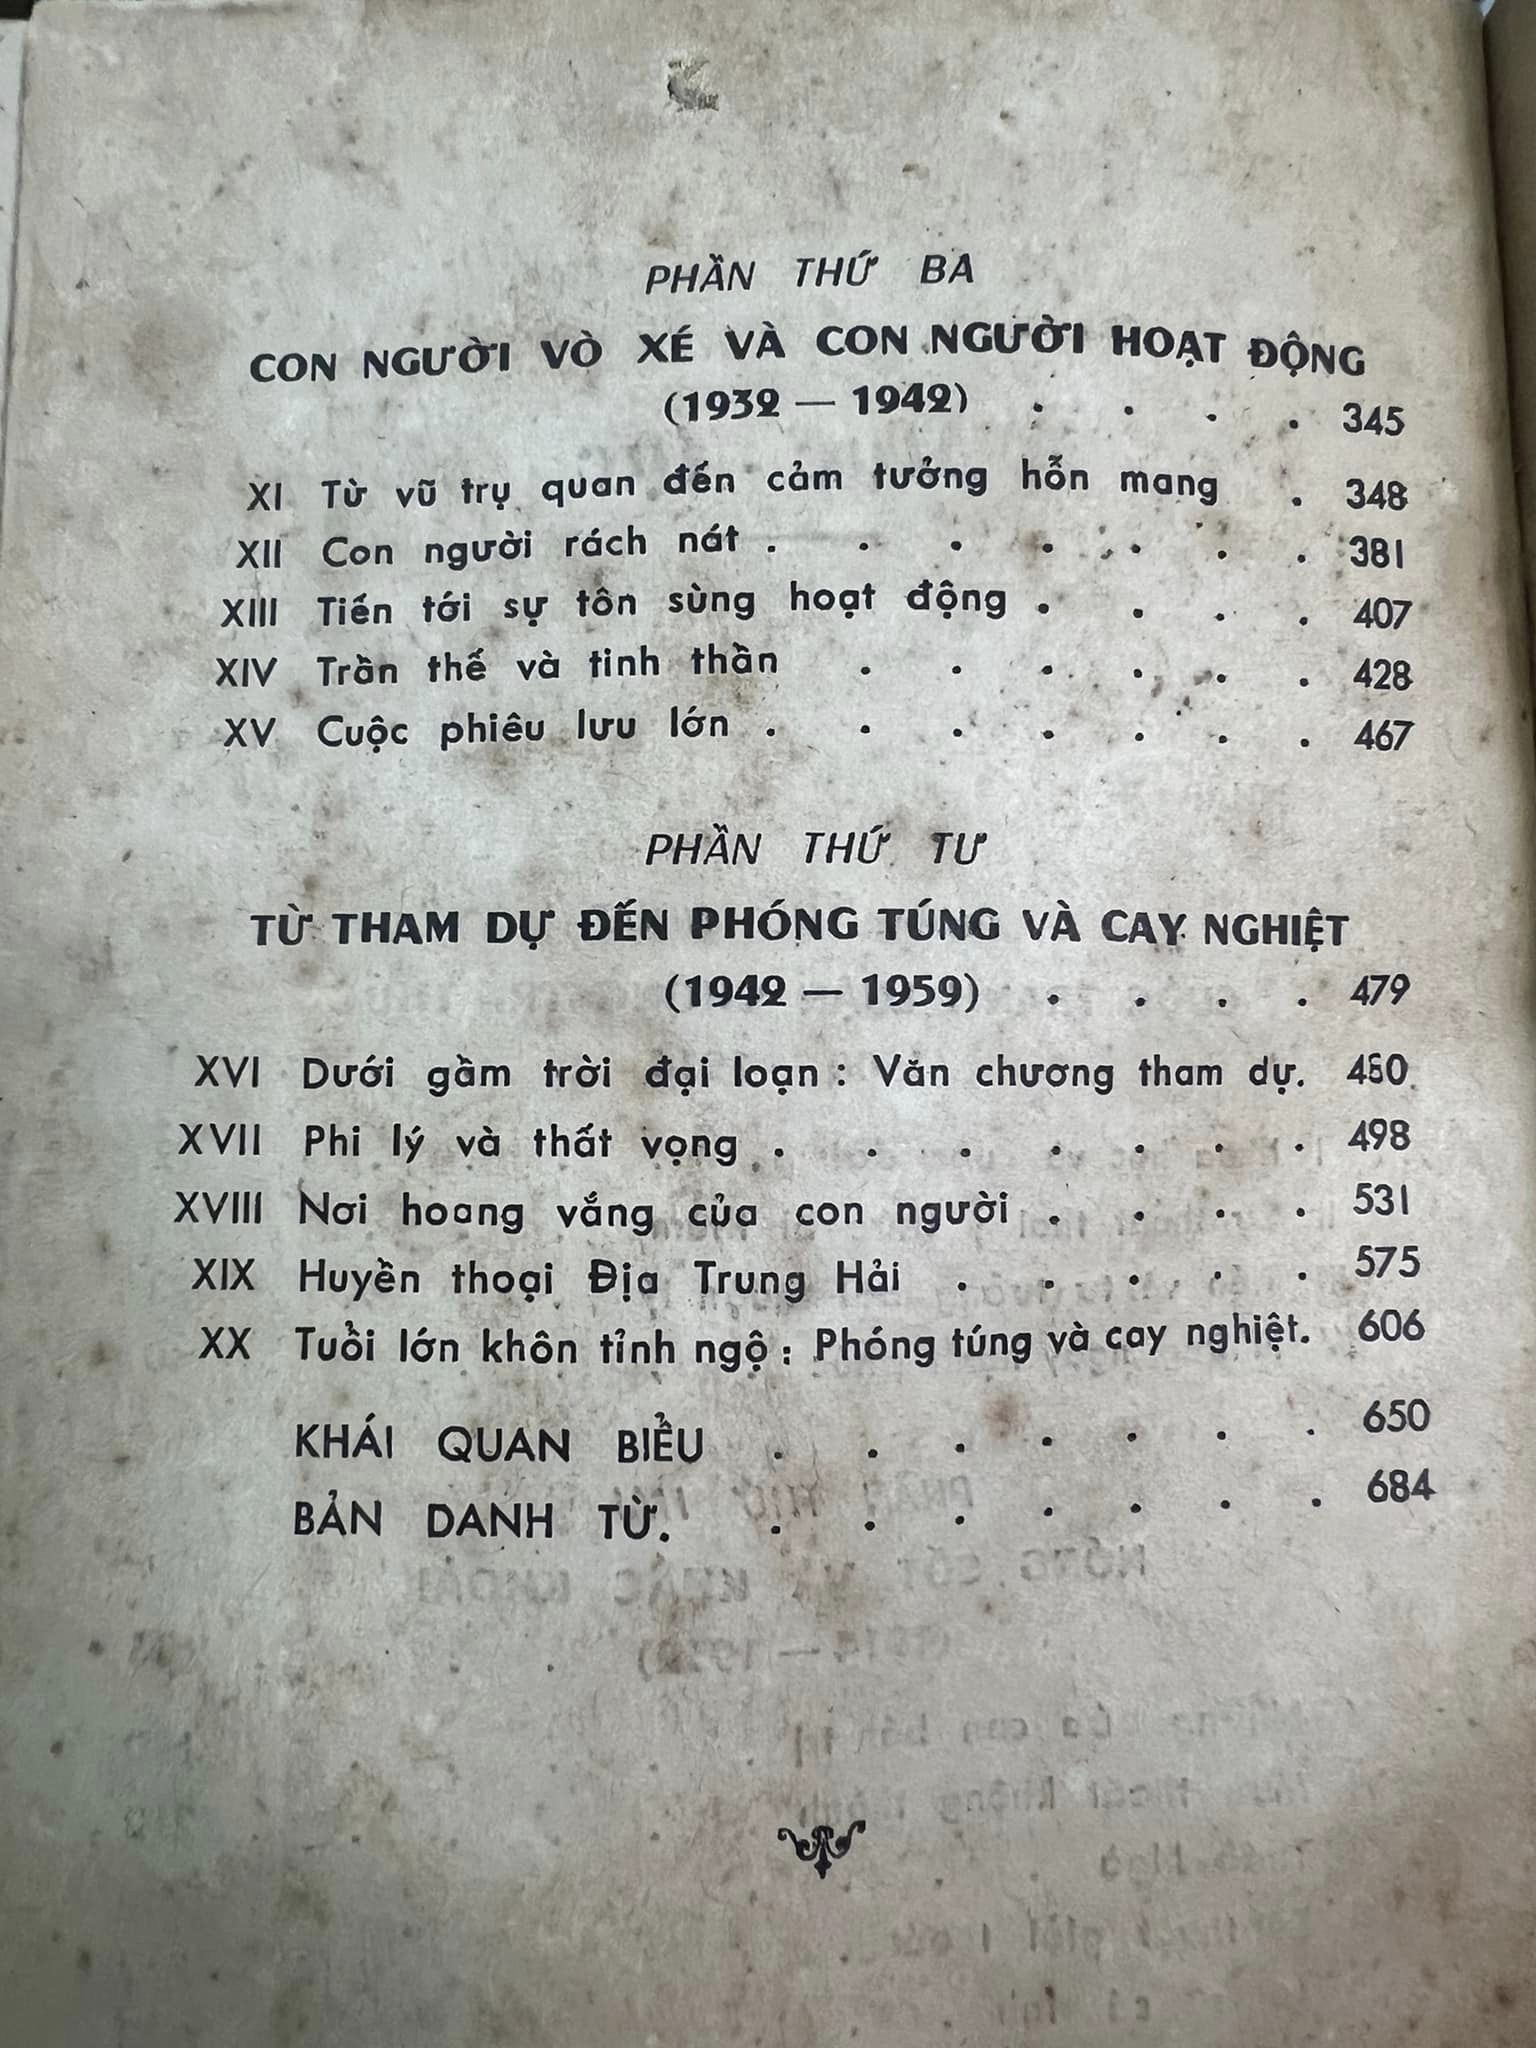 PHẦN THỨ BA
CON NGƯỜI VÒ XÉ VÀ CON NGƯỜI HOẠT ĐỘNG
(1932 — 1942) . . . . 345
XI Từ vũ trụ quan đến cảm tưởng hỗn mang . 348
XII Con người rách nát . . . . . . . 381
XIII Tiến tới sự tôn sùng hoạt động . . . . 407
XIV Trần thế và tinh thần . . . . . . 428
XV Cuộc phiêu lưu lớn . . . . . . . 467
PHẦN THỨ TƯ
TỪ THAM DỰ ĐẾN PHÓNG TÚNG VÀ CAY NGHIỆT
(1942 — 1959) . . . . 479
XVI Dưới gầm trời đại loạn : Văn chương tham dự. 480
XVII Phi lý và thất vọng . . . . . . . 498
XVIII Nơi hoang vắng của con người . . . . 531
XIX Huyền thoại Địa Trung Hải . . . . . 575
XX Tuổi lớn khôn tỉnh ngộ : Phóng túng và cay nghiệt. 606
KHÁI QUAN BIỂU . . . . . . . 650
BẢN DANH TỪ. . . . . . . . 684